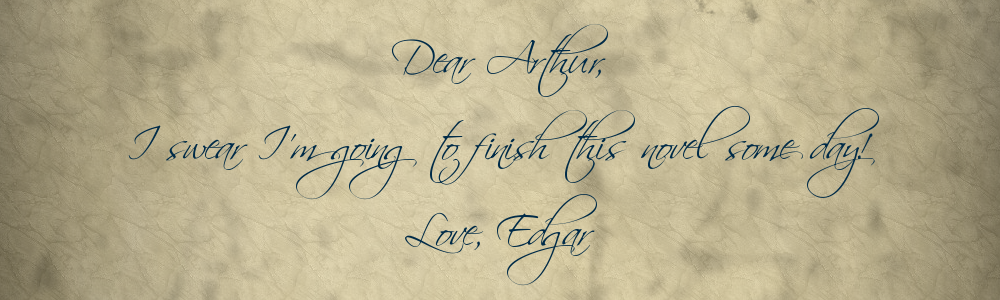 Dear Arthur,
I swear I'm going to finish this novel some day!
Love, Edgar